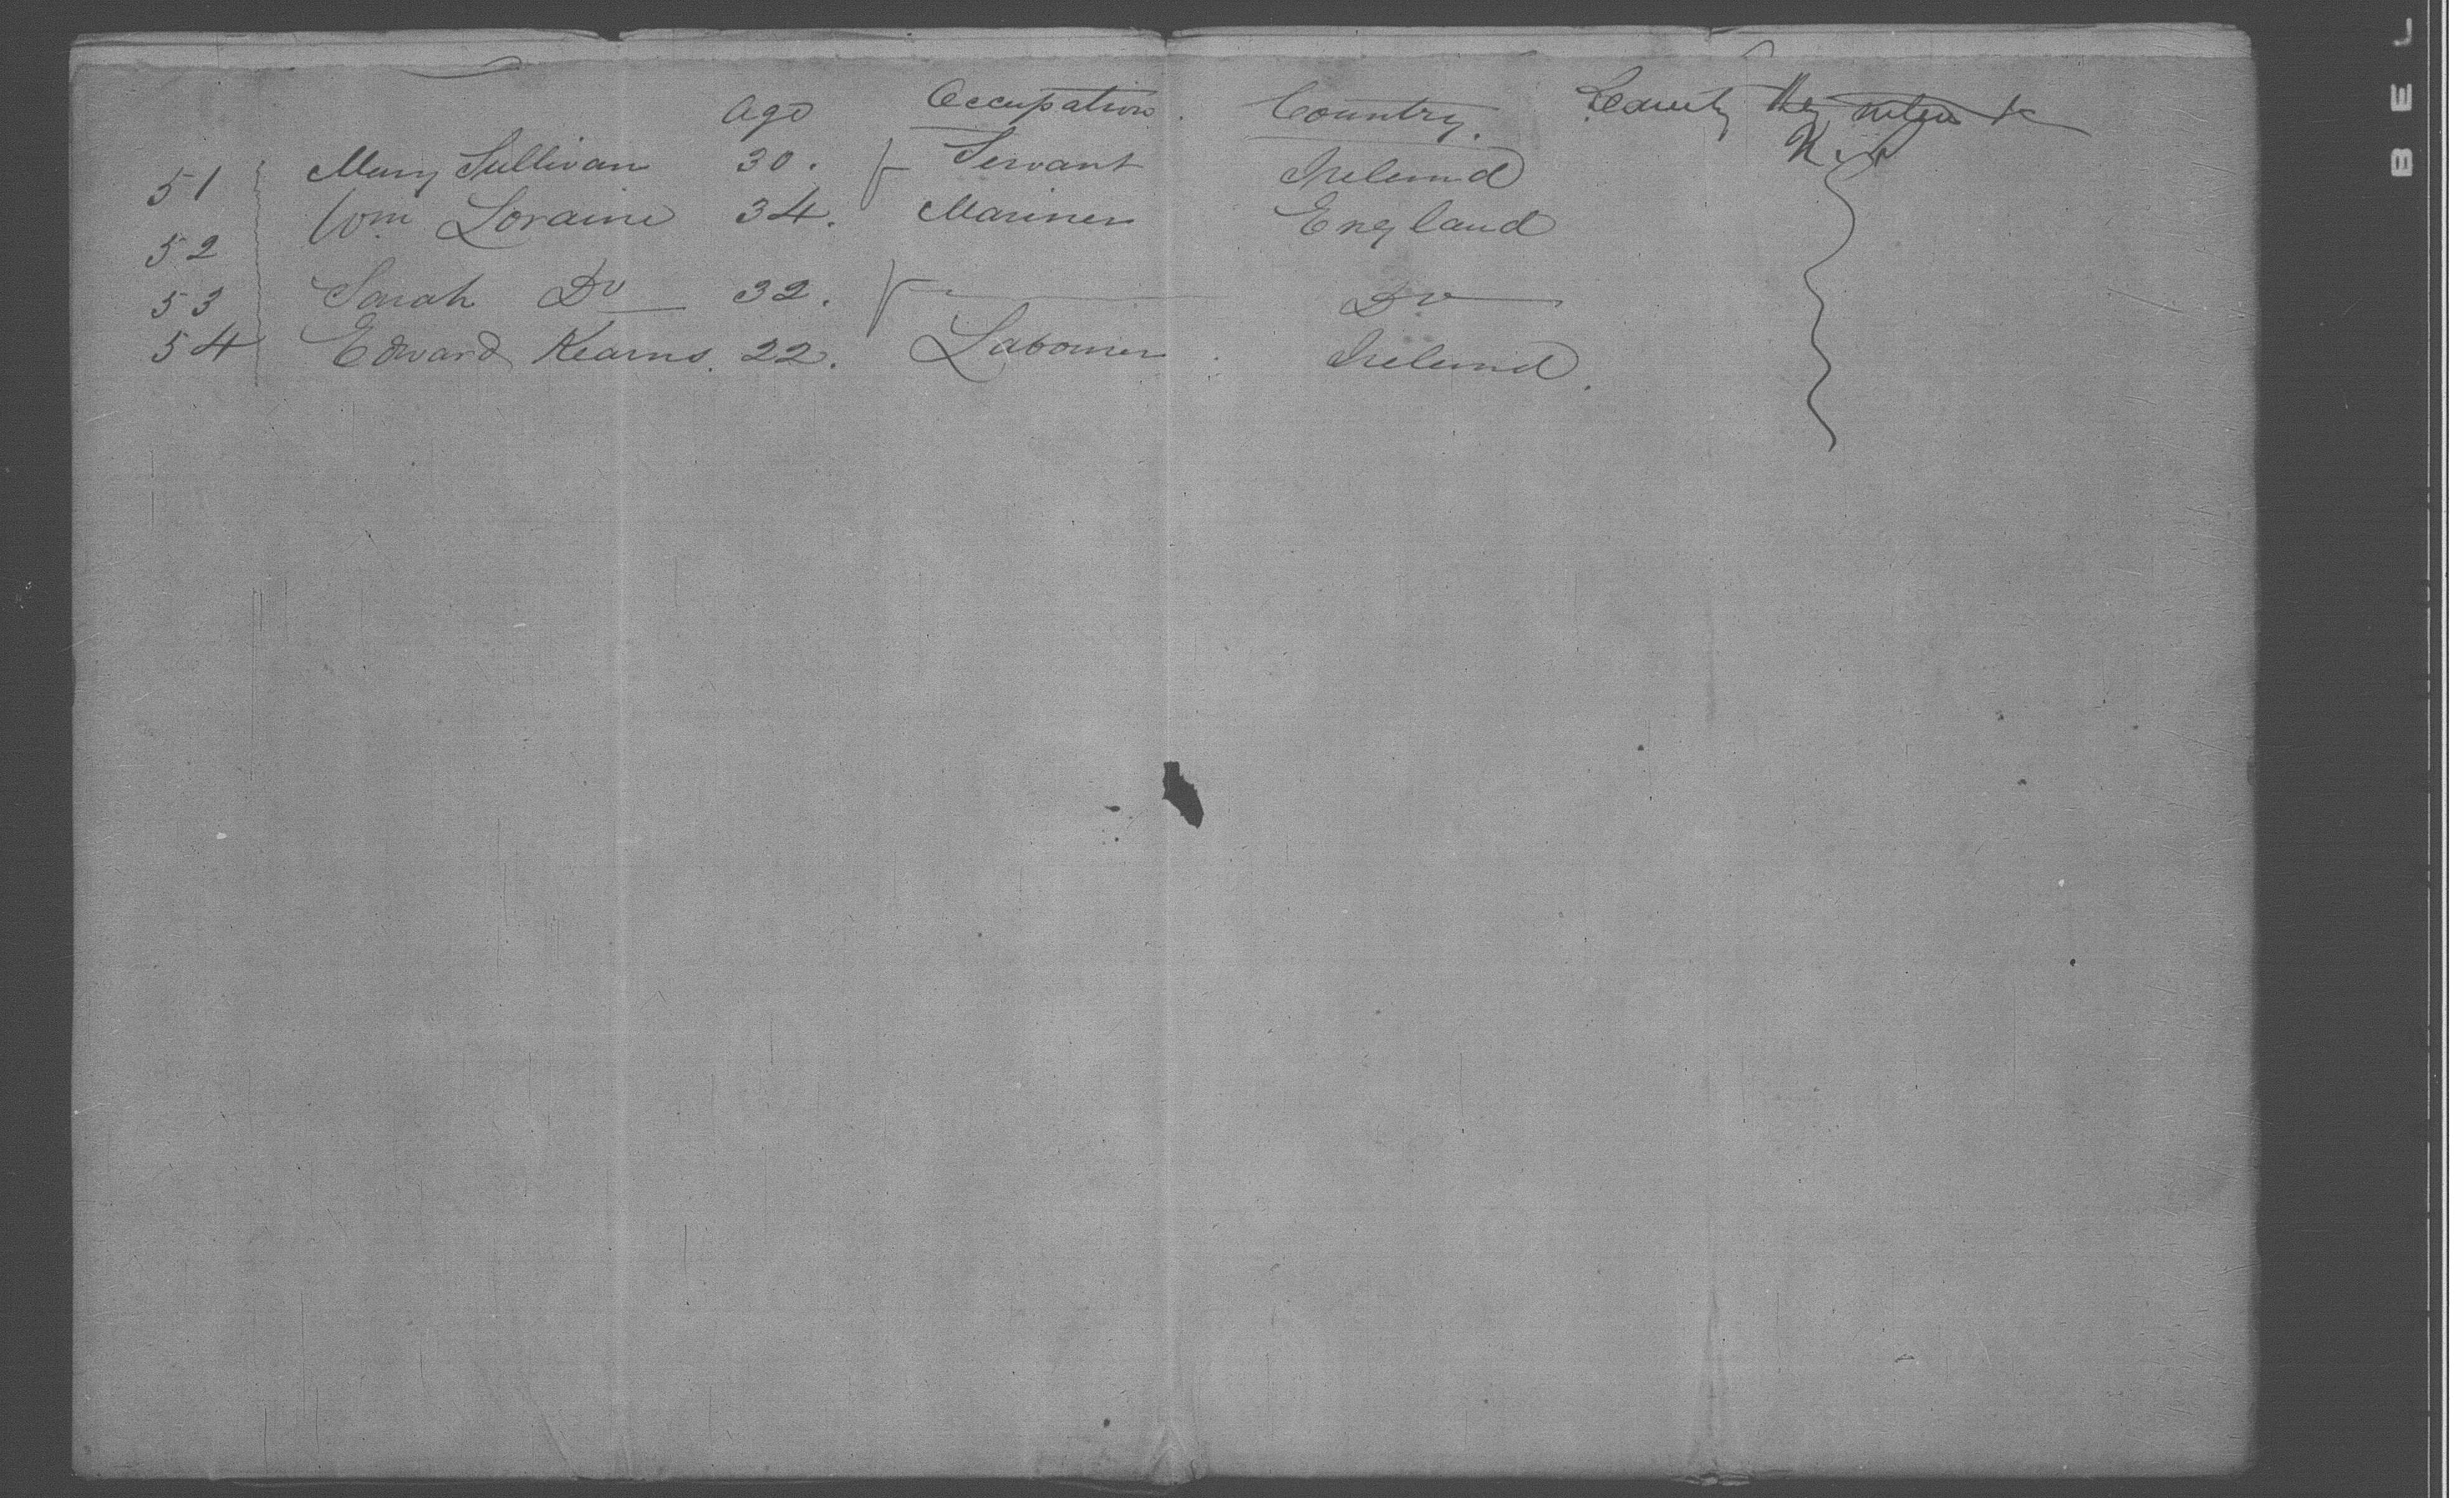 Age Occupation. Country. County they intend to
N. Y.
51 Mary Sullivan 30. f Servant Ireland
52 Wm Loraine 34. Mariner England
53 Sarah Do 32. f Do
54 Edward Kearns. 22. Labourer Ireland.
L
E
B